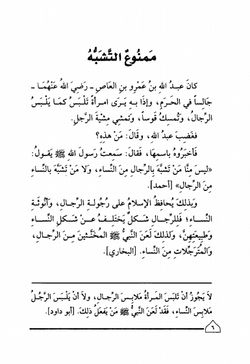 مَمنُوعٌ التَّشَبُّهُ
كانَ عبدُ اللهِ بنُ عمرِو بنِ العاصِ ـ رَضِيَ اللهُ عَنْهُمَا ـ
جَالِساً في الحَرَمِ، وإذَا بِهِ يَرى امرأةً تَلْبَسُ كمَا يَلْبَسُ
الرِّجالُ، وتُمسِكُ قَوساً، وتَمشِي مِشْيةَ الرَّجلِ.
فغَضِبَ عبدُ اللهِ، وقَالَ: مَنْ هذِهِ؟
فأخبَرُوهُ باسمِهَا، فقَالَ: سَمِعتُ رسولَ اللهِ ﷺ يقُولُ:
«ليسَ مِنَّا مَنْ تَشَبَّهَ بِالرِّجالِ مِنَ النِّساءِ، وَلا مَنْ تَشَبَّهَ بالنِّساءِ
مِنَ الرِّجالِ» [أحمد].
وبَذلِكَ يُحافِظُ الإسلامُ على رُجولَةِ الرِّجالِ، وأُنُوثَةِ
النِّساءِ؛ فللرِّجالِ شَكلٌ يَختلِفُ عنْ شَكلِ النِّساءِ
وطَبيعتِهِنَّ، وكذَلكَ لَعَنَ النَّبيُّ ﷺ المُخنَّثينَ مِنَ الرِّجالِ،
والمُترَجِّلاتِ مِنَ النِّساءِ. [البخاري].
لَا يَجُوزُ أَنْ تَلبَسَ المَرأةُ مَلابِسَ الرِّجالِ، ولاَ أَنْ يَلبَسَ الرَّجُلُ
مَلابِسَ النِّساءِ، فَقَدْ لَعَنَ النَّبيُّ ﷺ مَنْ يَفعَلُ ذَلكَ. [أبو داود].
٦